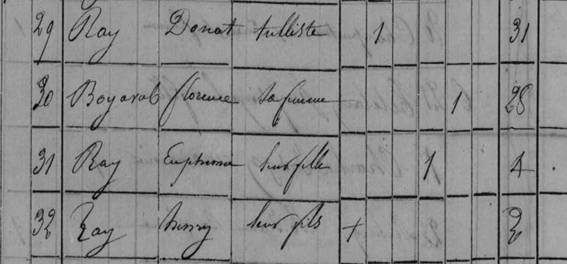 29 Ray Donat tulliste 1 31
30 Bayaral florence sa femme 1 28
31 Ray Euphrosine leur fille 1 4
32 Ray henry leur fils 1 2